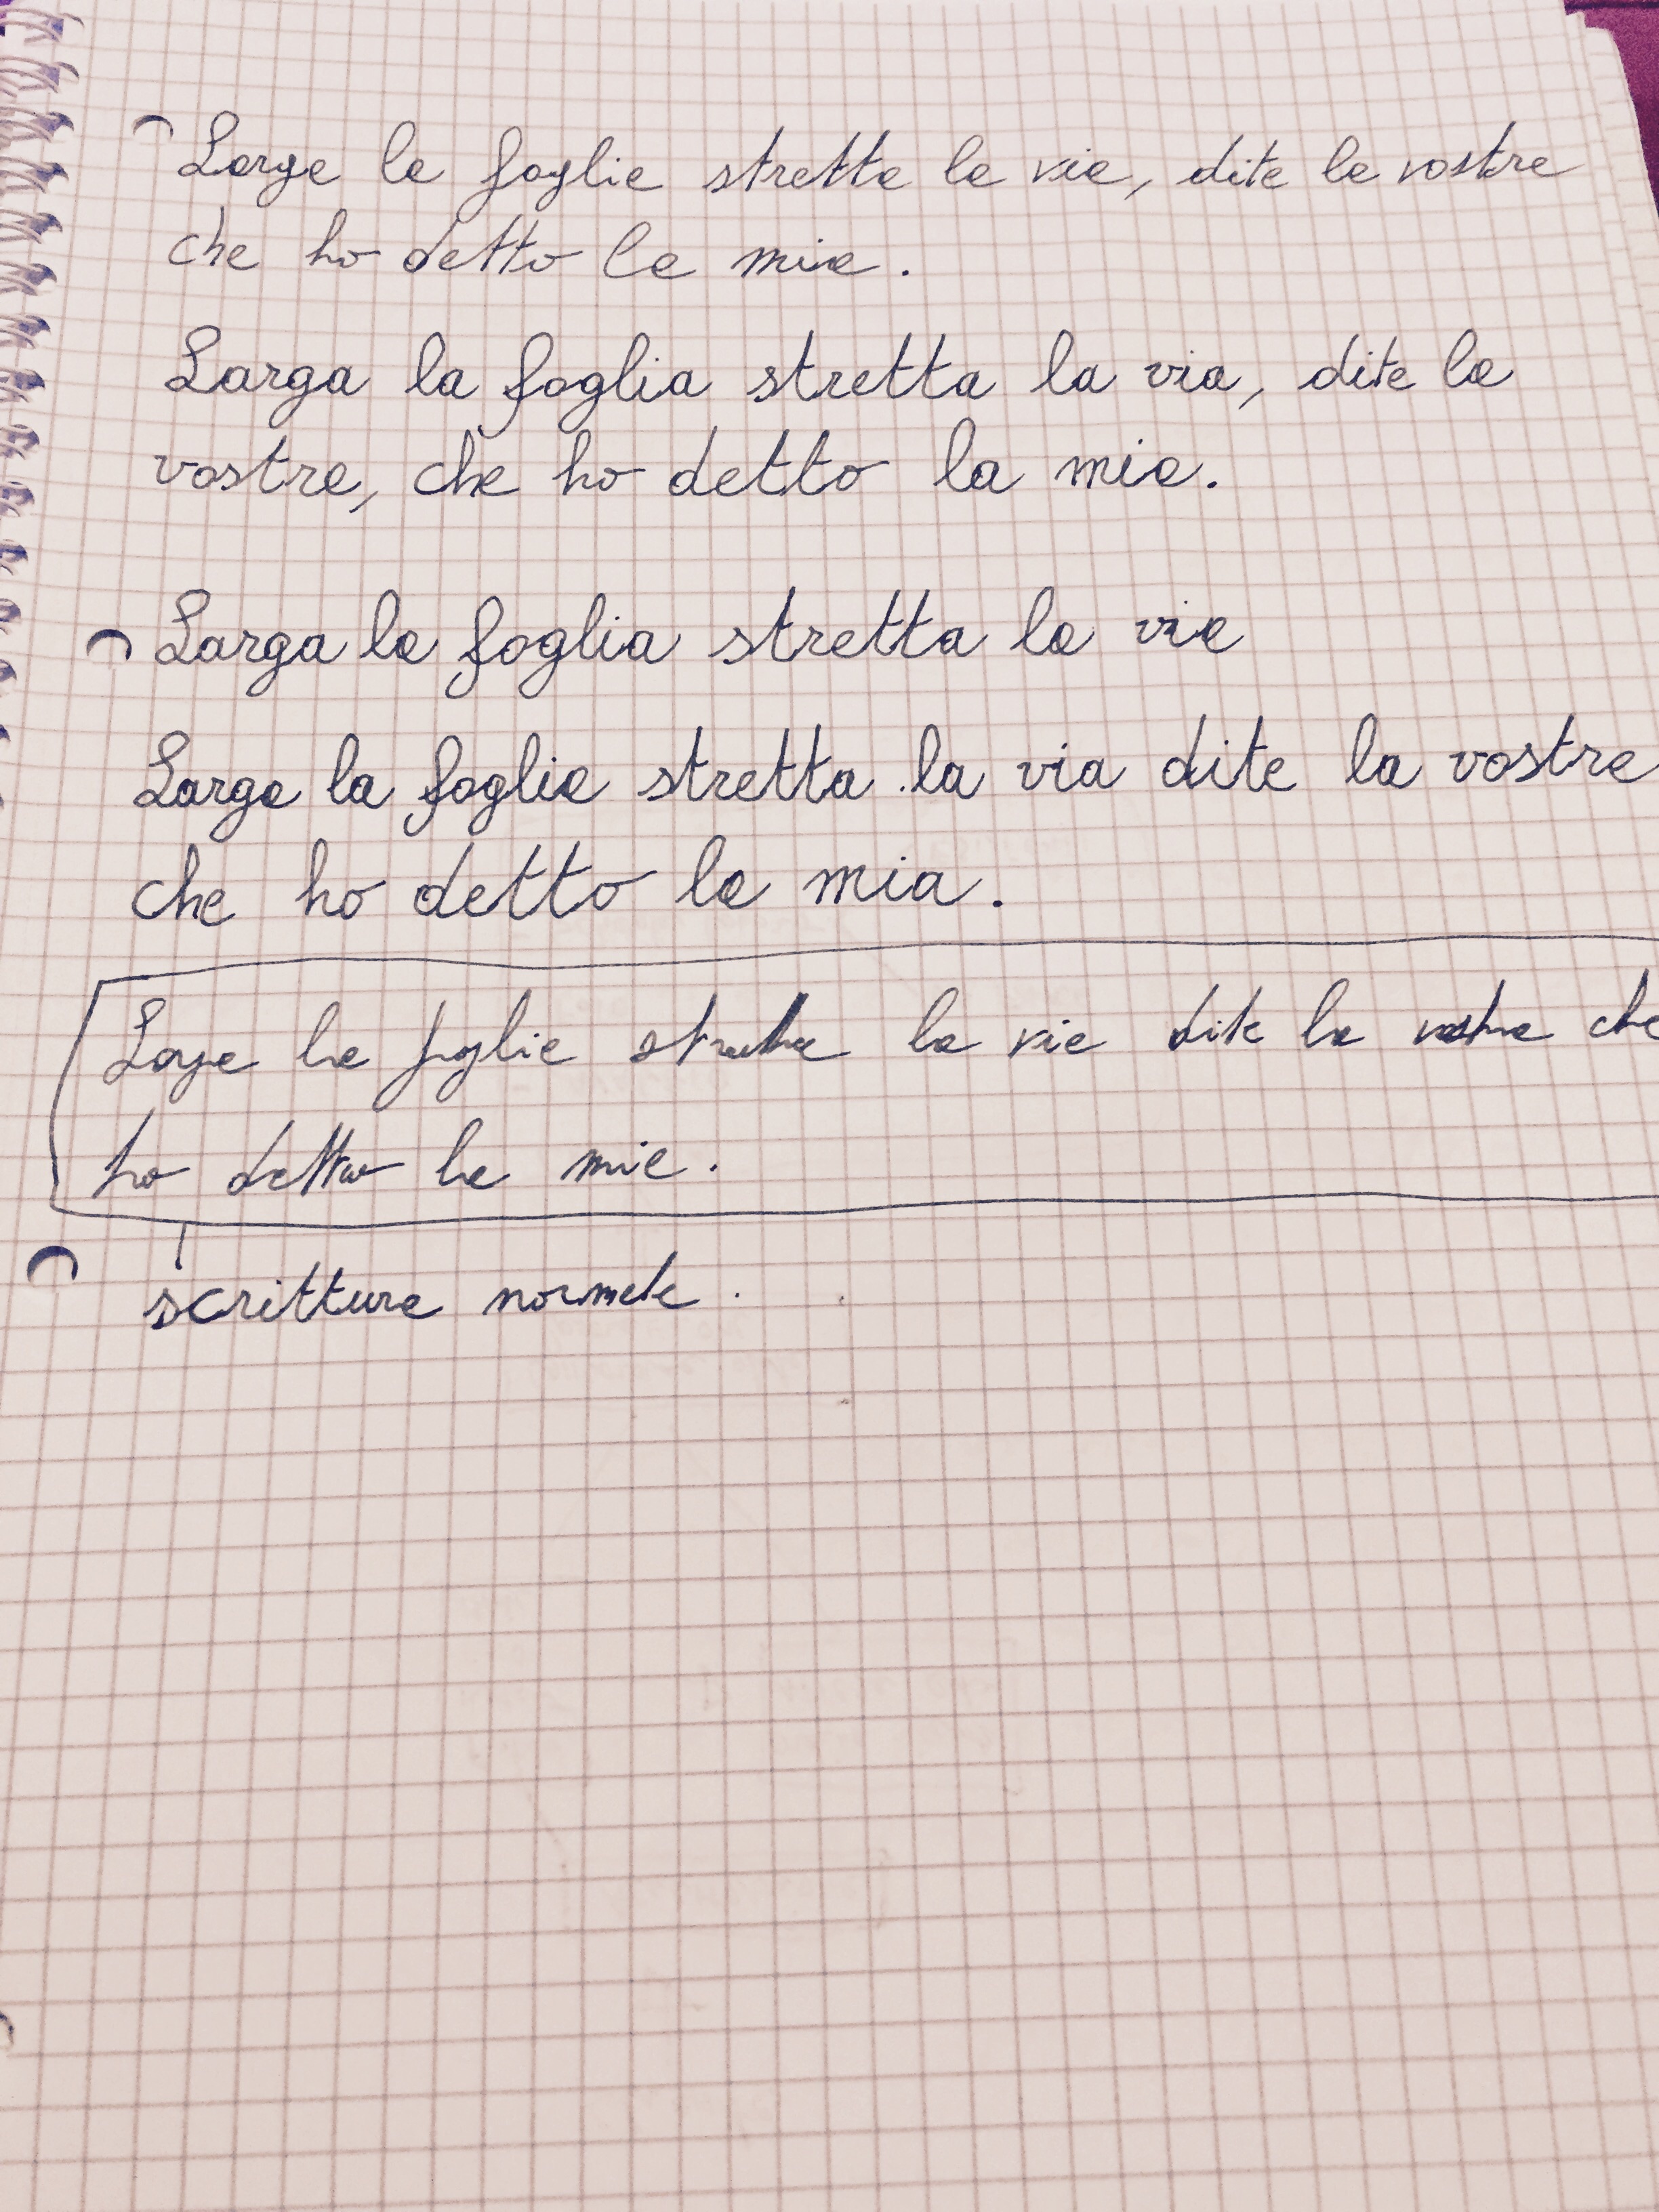 Larga la foglia stretta la via, dite la vostra
che ho detto la mia.
Larga la foglia stretta la via, dite la
vostra, che ho detto la mia.
Larga la foglia stretta la via
Larga la foglia stretta la via dite la vostra
che ho detto la mia.
Larga la foglia stretta la via dite la vostra che
ho detto la mia.
scrittura normale.